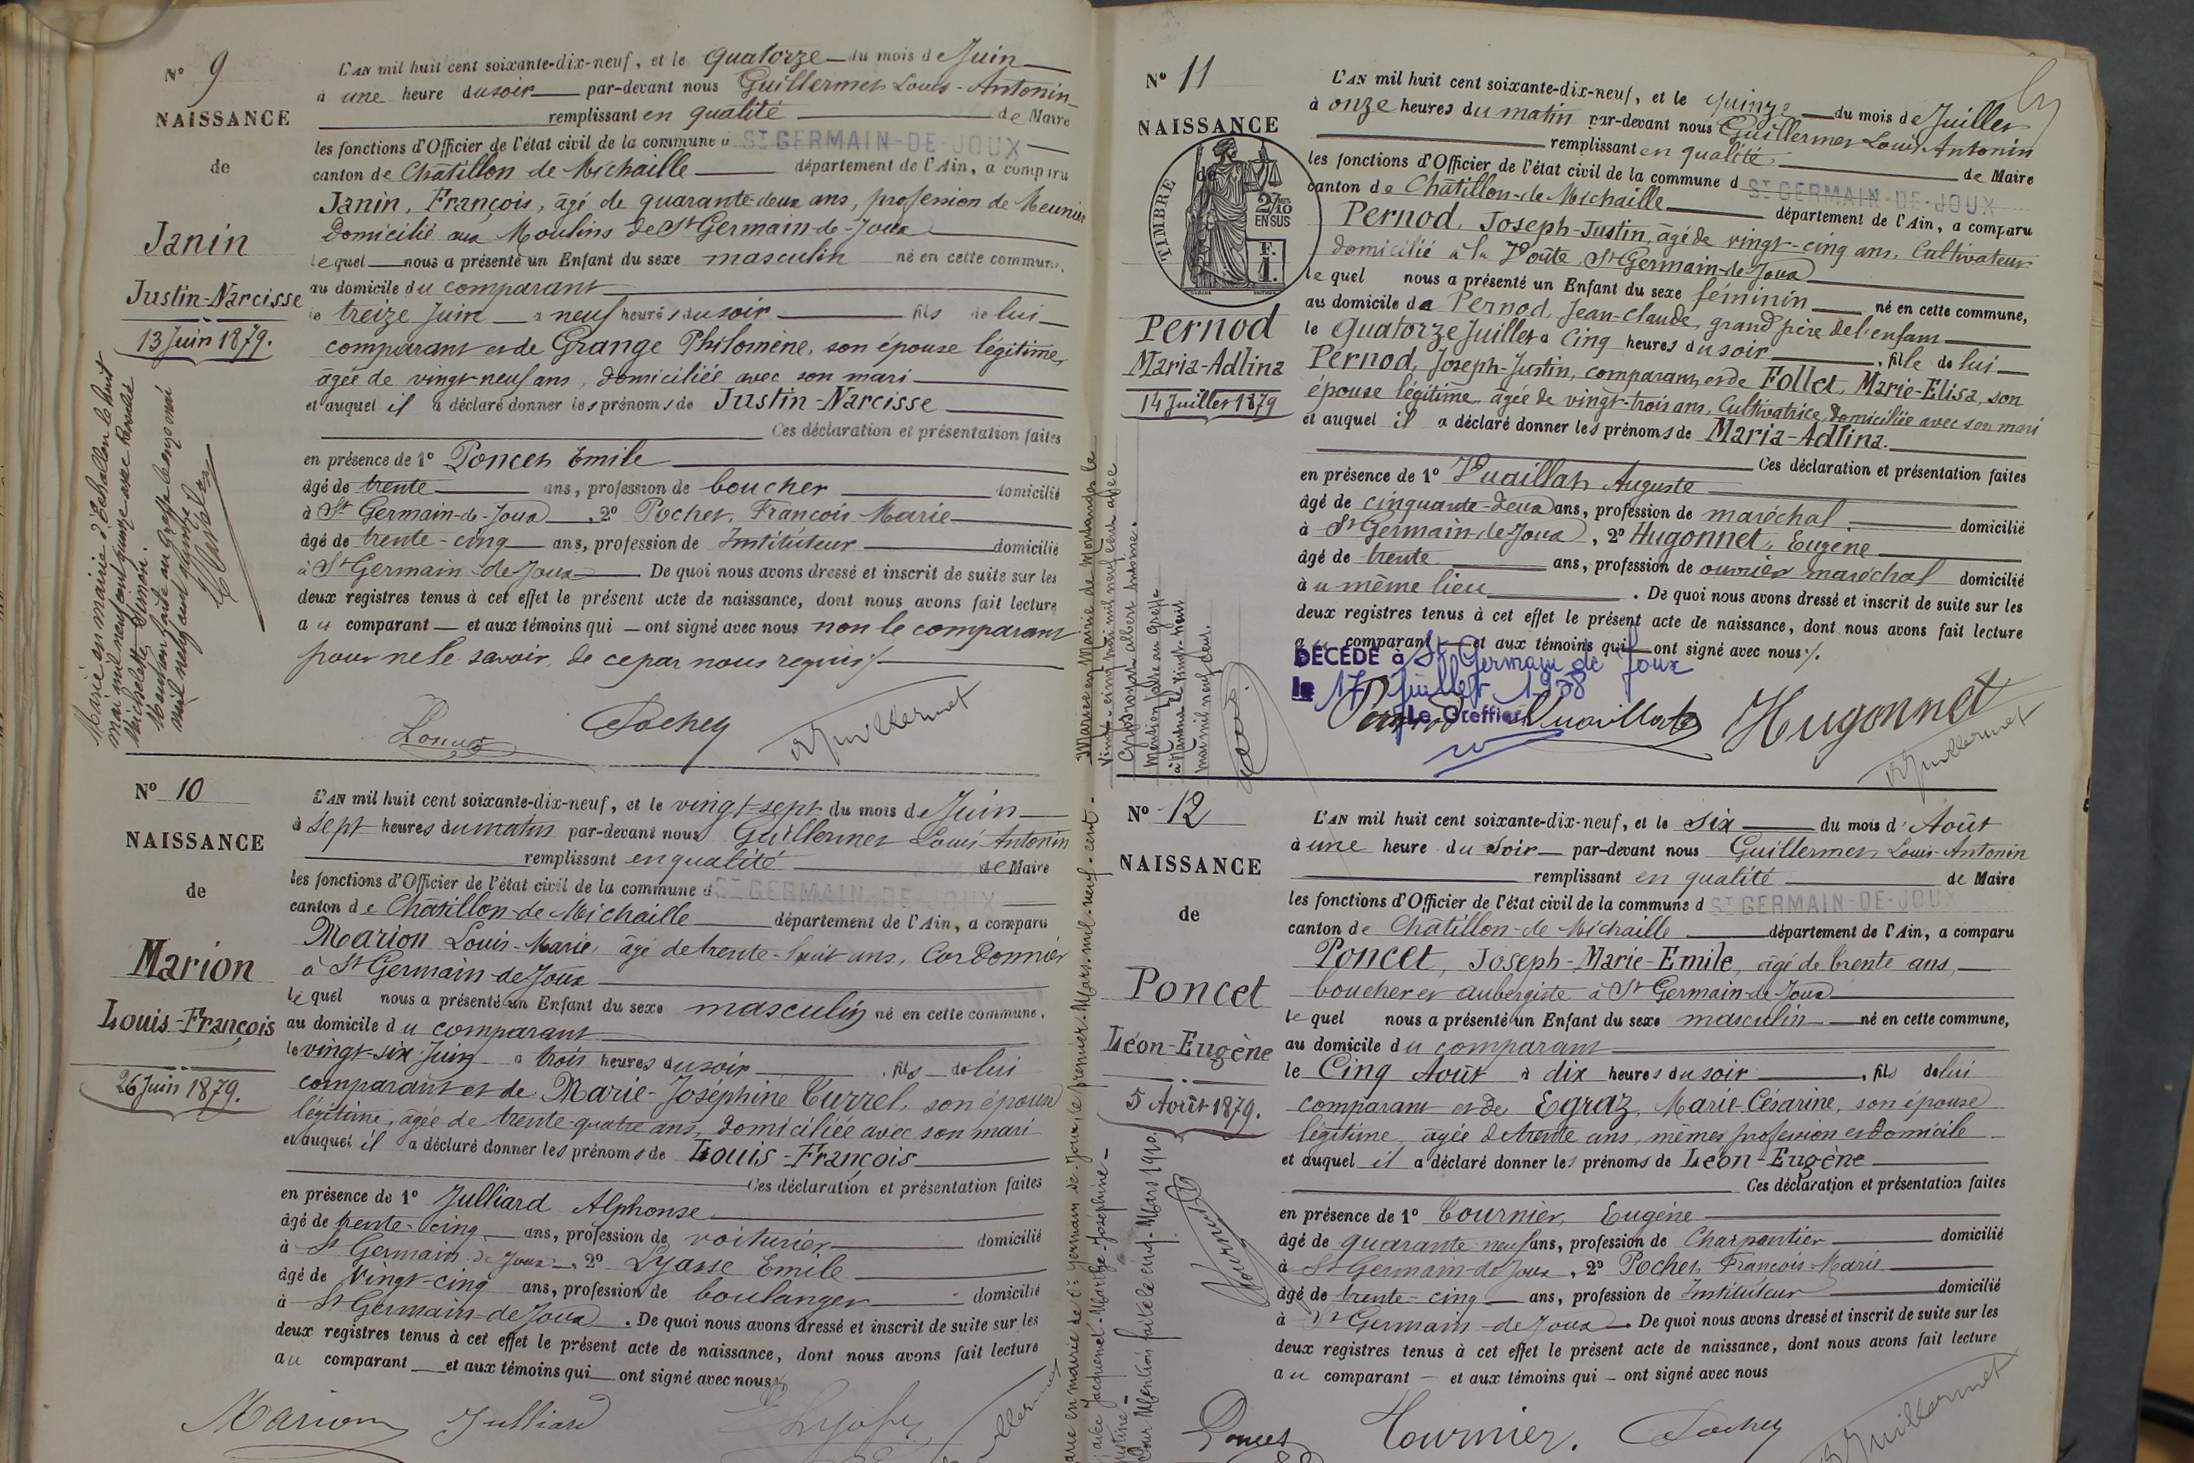 N° 9
NAISSANCE
de
Janin
Justin-Narcisse
13 Juin 1879.
L'AN mil huit cent soixante-dix-neuf, et le quatorze du mois de Juin
à une heure du soir par-devant nous Guillermet Louis-Antonin
remplissant en qualité de Maire
les fonctions d'Officier de l'état civil de la commune d ST GERMAIN-DE-JOUX
canton de Châtillon-de-Michaille département de l'Ain, a comparu
Janin, François, âgé de quarante-deux ans, profession de Meunier
domicilié aux Moulins de St Germain-de-Joux
lequel nous a présenté un Enfant du sexe masculin né en cette commune,
au domicile du comparant
le treize Juin à neuf heures du soir fils de lui
comparant et de Grange Philomène, son épouse légitime,
âgée de vingt-neuf ans, domiciliée avec son mari
et auquel il a déclaré donner les prénoms de Justin-Narcisse
Ces déclaration et présentation faites
en présence de 1° Poncet Emile
âgé de trente ans, profession de boucher domicilié
à St Germain-de-Joux, 2° Pochet, François Marie
âgé de trente-cinq ans, profession de Instituteur domicilié
à St Germain-de-Joux De quoi nous avons dressé et inscrit de suite sur les
deux registres tenus à cet effet le présent acte de naissance, dont nous avons fait lecture
au comparant et aux témoins qui ont signé avec nous non le comparant
pour ne le savoir, de ce par nous requis
Poncet Pochet Guillermet
Marié en mairie d'Echallon le huit
mai mil neuf cent quinze avec
Michelette
Mention faite au Greffe le onze mai
mil neuf cent quinze
N° 10
NAISSANCE
de
Marion
Louis-François
26 Juin 1879.
L'AN mil huit cent soixante-dix-neuf, et le vingt-sept du mois de Juin
à sept heures du matin par-devant nous Guillermet Louis Antonin
remplissant en qualité de Maire
les fonctions d'Officier de l'état civil de la commune d ST GERMAIN-DE-JOUX
canton de Châtillon-de-Michaille département de l'Ain, a comparu
Marion Louis-Marie, âgé de trente-huit ans, Cordonnier
à St Germain-de-Joux
lequel nous a présenté un Enfant du sexe masculin né en cette commune,
au domicile du comparant
le vingt-six Juin à trois heures du soir, fils de lui
comparant et de Marie-Joséphine Turrel, son épouse
légitime, âgée de trente-quatre ans, domiciliée avec son mari
et auquel il a déclaré donner les prénoms de Louis-François
Ces déclaration et présentation faites
en présence de 1° Julliard Alphonse
âgé de trente-cinq ans, profession de voiturier domicilié
à St Germain de Joux, 2° Lyasse Emile
âgé de vingt-cinq ans, profession de boulanger domicilié
à St Germain-de-Joux. De quoi nous avons dressé et inscrit de suite sur les
deux registres tenus à cet effet le présent acte de naissance, dont nous avons fait lecture
au comparant et aux témoins qui ont signé avec nous
Marion Julliard
Marié en mairie de St Germain-de-Joux, le premier-Mars-mil-neuf-cent-
avec Jacquenet-Marthe-Joséphine-
Pour Mention faite le cinq-Mars 1910.
N° 11
NAISSANCE
de
TIMBRE
2/10
EN SUS
F.
1.
Pernod
Maria-Adlina
14 Juillet 1879
L'AN mil huit cent soixante-dix-neuf, et le quinze du mois de Juillet
à onze heures du matin par-devant nous Guillermet Louis Antonin
remplissant en qualité de Maire
les fonctions d'Officier de l'état civil de la commune d ST GERMAIN-DE-JOUX
canton de Châtillon-de-Michaille département de l'Ain, a comparu
Pernod, Joseph-Justin, âgé de vingt-cinq ans, Cultivateur
domicilié à la Voûte, St Germain-de-Joux
lequel nous a présenté un Enfant du sexe féminin né en cette commune,
au domicile de Pernod, Jean-Claude, grand père de l'enfant
le quatorze Juillet à cinq heures du soir, fille de lui
Pernod, Joseph-Justin, comparant et de Follet, Marie-Elisa, son
épouse légitime âgée de vingt-trois ans, Cultivatrice, domiciliée avec son mari
et auquel il a déclaré donner les prénoms de Maria-Adlina.
Ces déclaration et présentation faites
en présence de 1° Vuaillat Auguste
âgé de cinquante-deux ans, profession de maréchal domicilié
à St Germain-de-Joux, 2° Hugonnet, Eugène
âgé de trente ans, profession de ouvrier maréchal domicilié
au même lieu. De quoi nous avons dressé et inscrit de suite sur les
deux registres tenus à cet effet le présent acte de naissance, dont nous avons fait lecture
au comparant et aux témoins qui ont signé avec nous
DÉCÉDÉ à St Germain de Joux
le 17 juillet 1958
Le Greffier
Pernod Vuaillat Hugonnet
Guillermet
Mariée en Mairie de le
vingt-cinq mai mil neuf cent avec
Albert
Mention faite au greffe
à Nantua le vingt-huit
mai mil neuf cent.
N° 12
NAISSANCE
de
Poncet
Léon-Eugène
5 Août 1879.
L'AN mil huit cent soixante-dix-neuf, et le six du mois d'Août
à une heure du soir par-devant nous Guillermet Louis-Antonin
remplissant en qualité de Maire
les fonctions d'Officier de l'état civil de la commune d ST GERMAIN-DE-JOUX
canton de Châtillon-de-Michaille département de l'Ain, a comparu
Poncet, Joseph-Marie-Emile, âgé de trente ans,
boucher et aubergiste à St Germain-de-Joux
lequel nous a présenté un Enfant du sexe masculin né en cette commune,
au domicile du comparant
le Cinq Août à dix heures du soir, fils de lui
comparant et de Egraz, Marie-Césarine, son épouse
légitime, âgée de trente ans, mêmes profession et domicile
et auquel il a déclaré donner les prénoms de Léon-Eugène
Ces déclaration et présentation faites
en présence de 1° Tournier, Eugène
âgé de quarante neuf ans, profession de Charpentier domicilié
à St Germain-de-Joux, 2° Pochet François-Marie
âgé de trente-cinq ans, profession de Instituteur domicilié
à St Germain-de-Joux De quoi nous avons dressé et inscrit de suite sur les
deux registres tenus à cet effet le présent acte de naissance, dont nous avons fait lecture
au comparant et aux témoins qui ont signé avec nous
Poncet Tournier. Pochet Guillermet